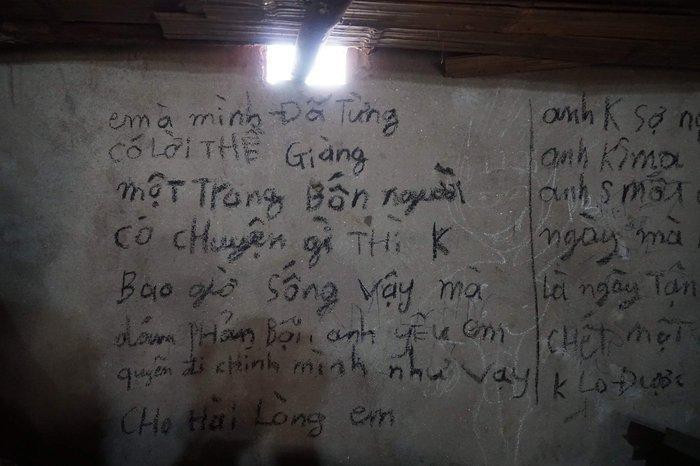 em à mình Đã Từng
CÓ LỜI THỀ Giàng
một Trong Bốn người
có cHuyện gì THÌ K
Bao giờ Sống Vậy mà
dám PHản Bội, anh yêu em
quyên đi chính mình như vậy
CHo Hài Lòng em
anh K Sợ
anh K
anh
ngày mà
là ngày Tận
CHết một
K Lo Được